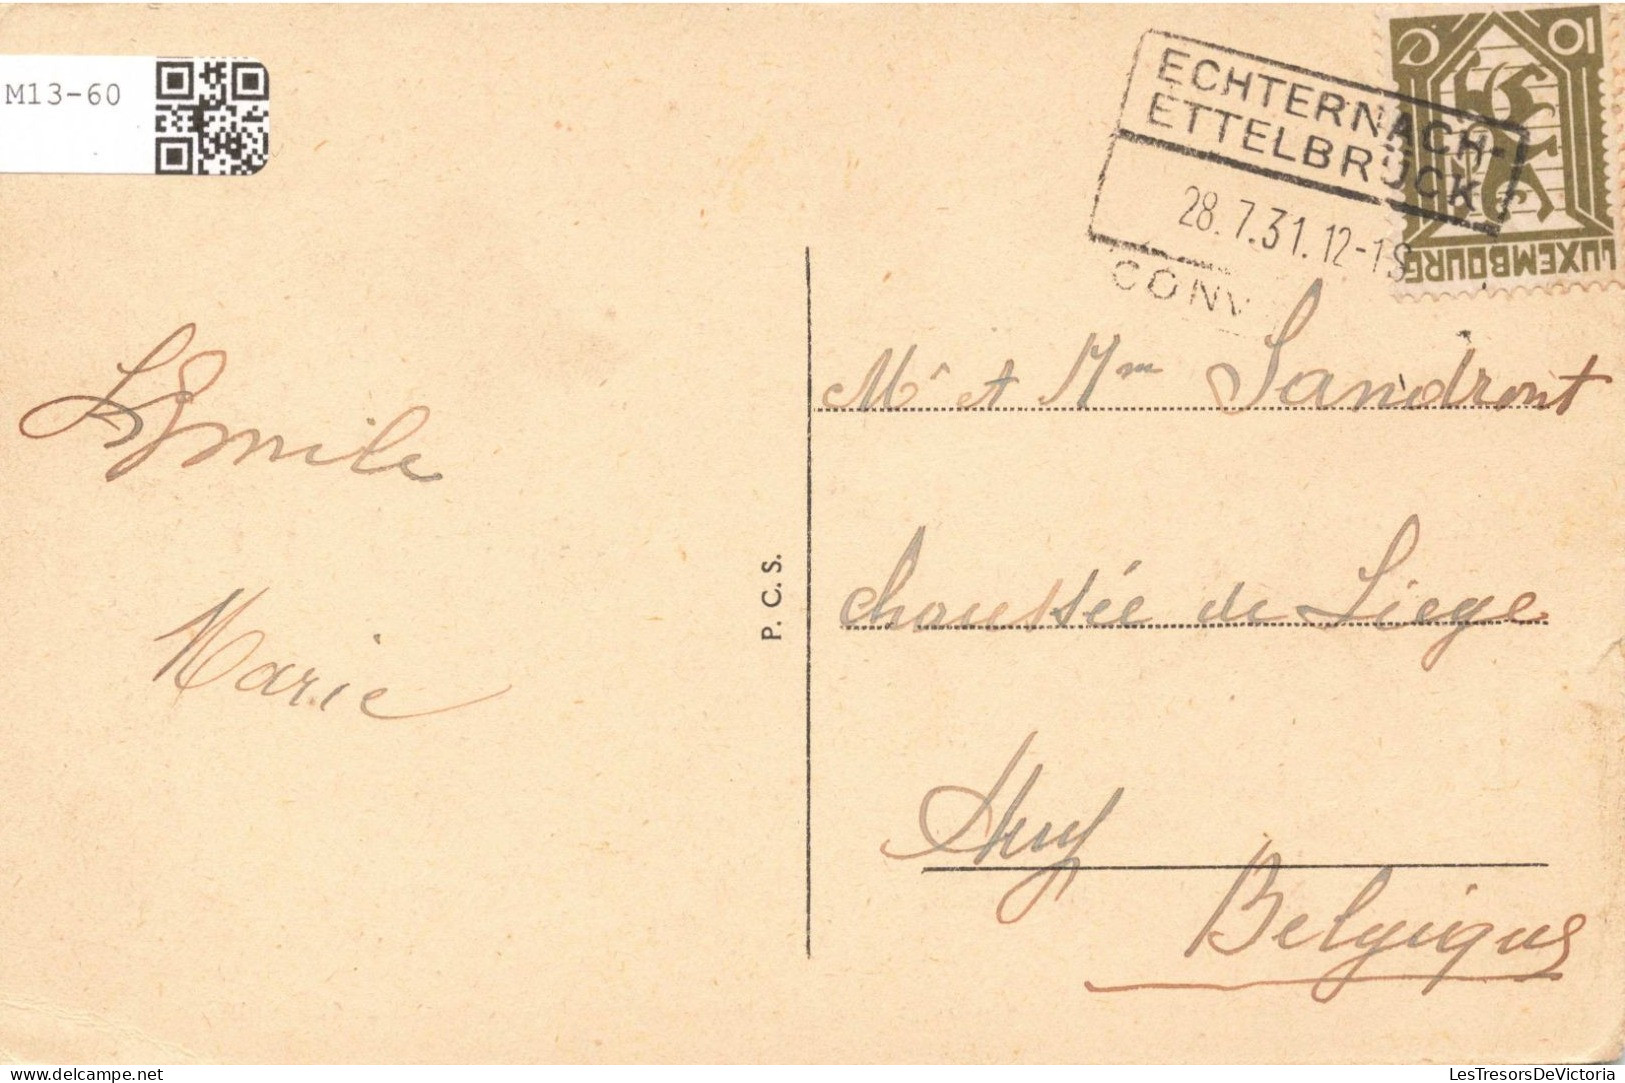 M13-60
ECHTERNACH-
ETTELBRÜCK
28.7.31.12-1
CONV
10 C
LUXEMBOURG
Mr et Mm Sandront
Emile
P. C. S.
chaussée de Liege
Marie
Huy
Belgique
LesTresorsDeVictoria